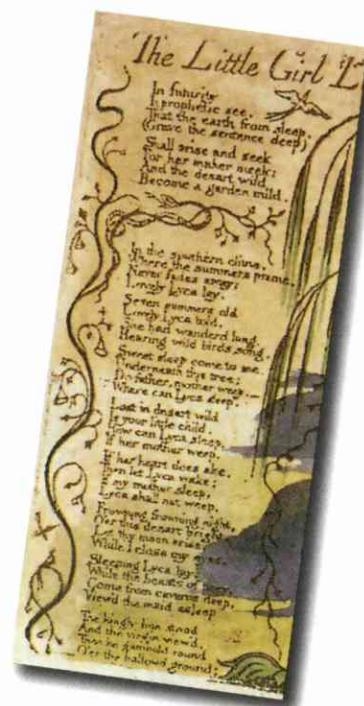 The Little Girl L
In futurity
I prophetic see,
That the earth from sleep,
(Grave the sentence deep)
Shall arise and seek
For her maker meek:
And the desart wild
Become a garden mild.
In the southern clime,
Where the summers prime,
Never fades away;
Lovely Lyca lay.
Seven summers old
Lovely Lyca told,
She had wanderd long,
Hearing wild birds song.
Sweet sleep come to me
Underneath this tree;
Do father, mother weep.—
Where can Lyca sleep.
Lost in desart wild
Is your little child.
How can Lyca sleep,
If her mother weep.
If her heart does ake,
Then let Lyca wake;
If my mother sleep,
Lyca shall not weep.
Frowning frowning night,
O'er this desart bright,
Let thy moon arise,
While I close my eyes.
Sleeping Lyca lay;
While the beasts of
Come from caverns deep,
View'd the maid asleep
The kingly lion stood
And the virgin view'd,
Then he gambold round
O'er the hallowd ground: